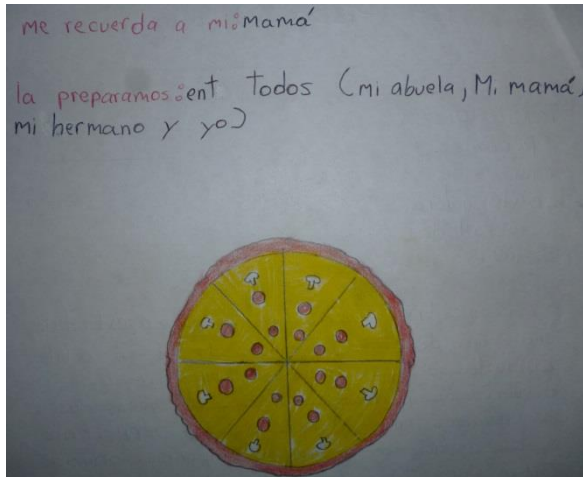 me recuerda a mi:Mamá
la preparamos:ent Todos (mi abuela, Mi mamá,
mi hermano y yo)